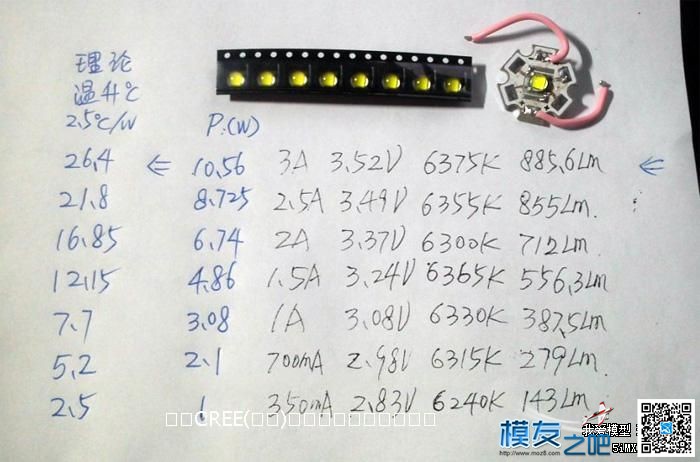 理论
温升℃
2.5℃/W P:(W)
26.4 ⇐ 10.56 3A 3.52V 6375K 885.6Lm ⇐
21.8 8.725 2.5A 3.49V 6355K 855Lm.
16.85 6.74 2A 3.37V 6300K 712Lm
12.15 4.86 1.5A 3.24V 6365K 556.3Lm
7.7 3.08 1A 3.08V 6330K 387.5Lm
5.2 2.1 700mA 2.98V 6315K 279Lm.
2.5 1 350mA 2.83V 6240K 143Lm
CREE
我爱模型
模友之吧
5iMX
www.moz8.com